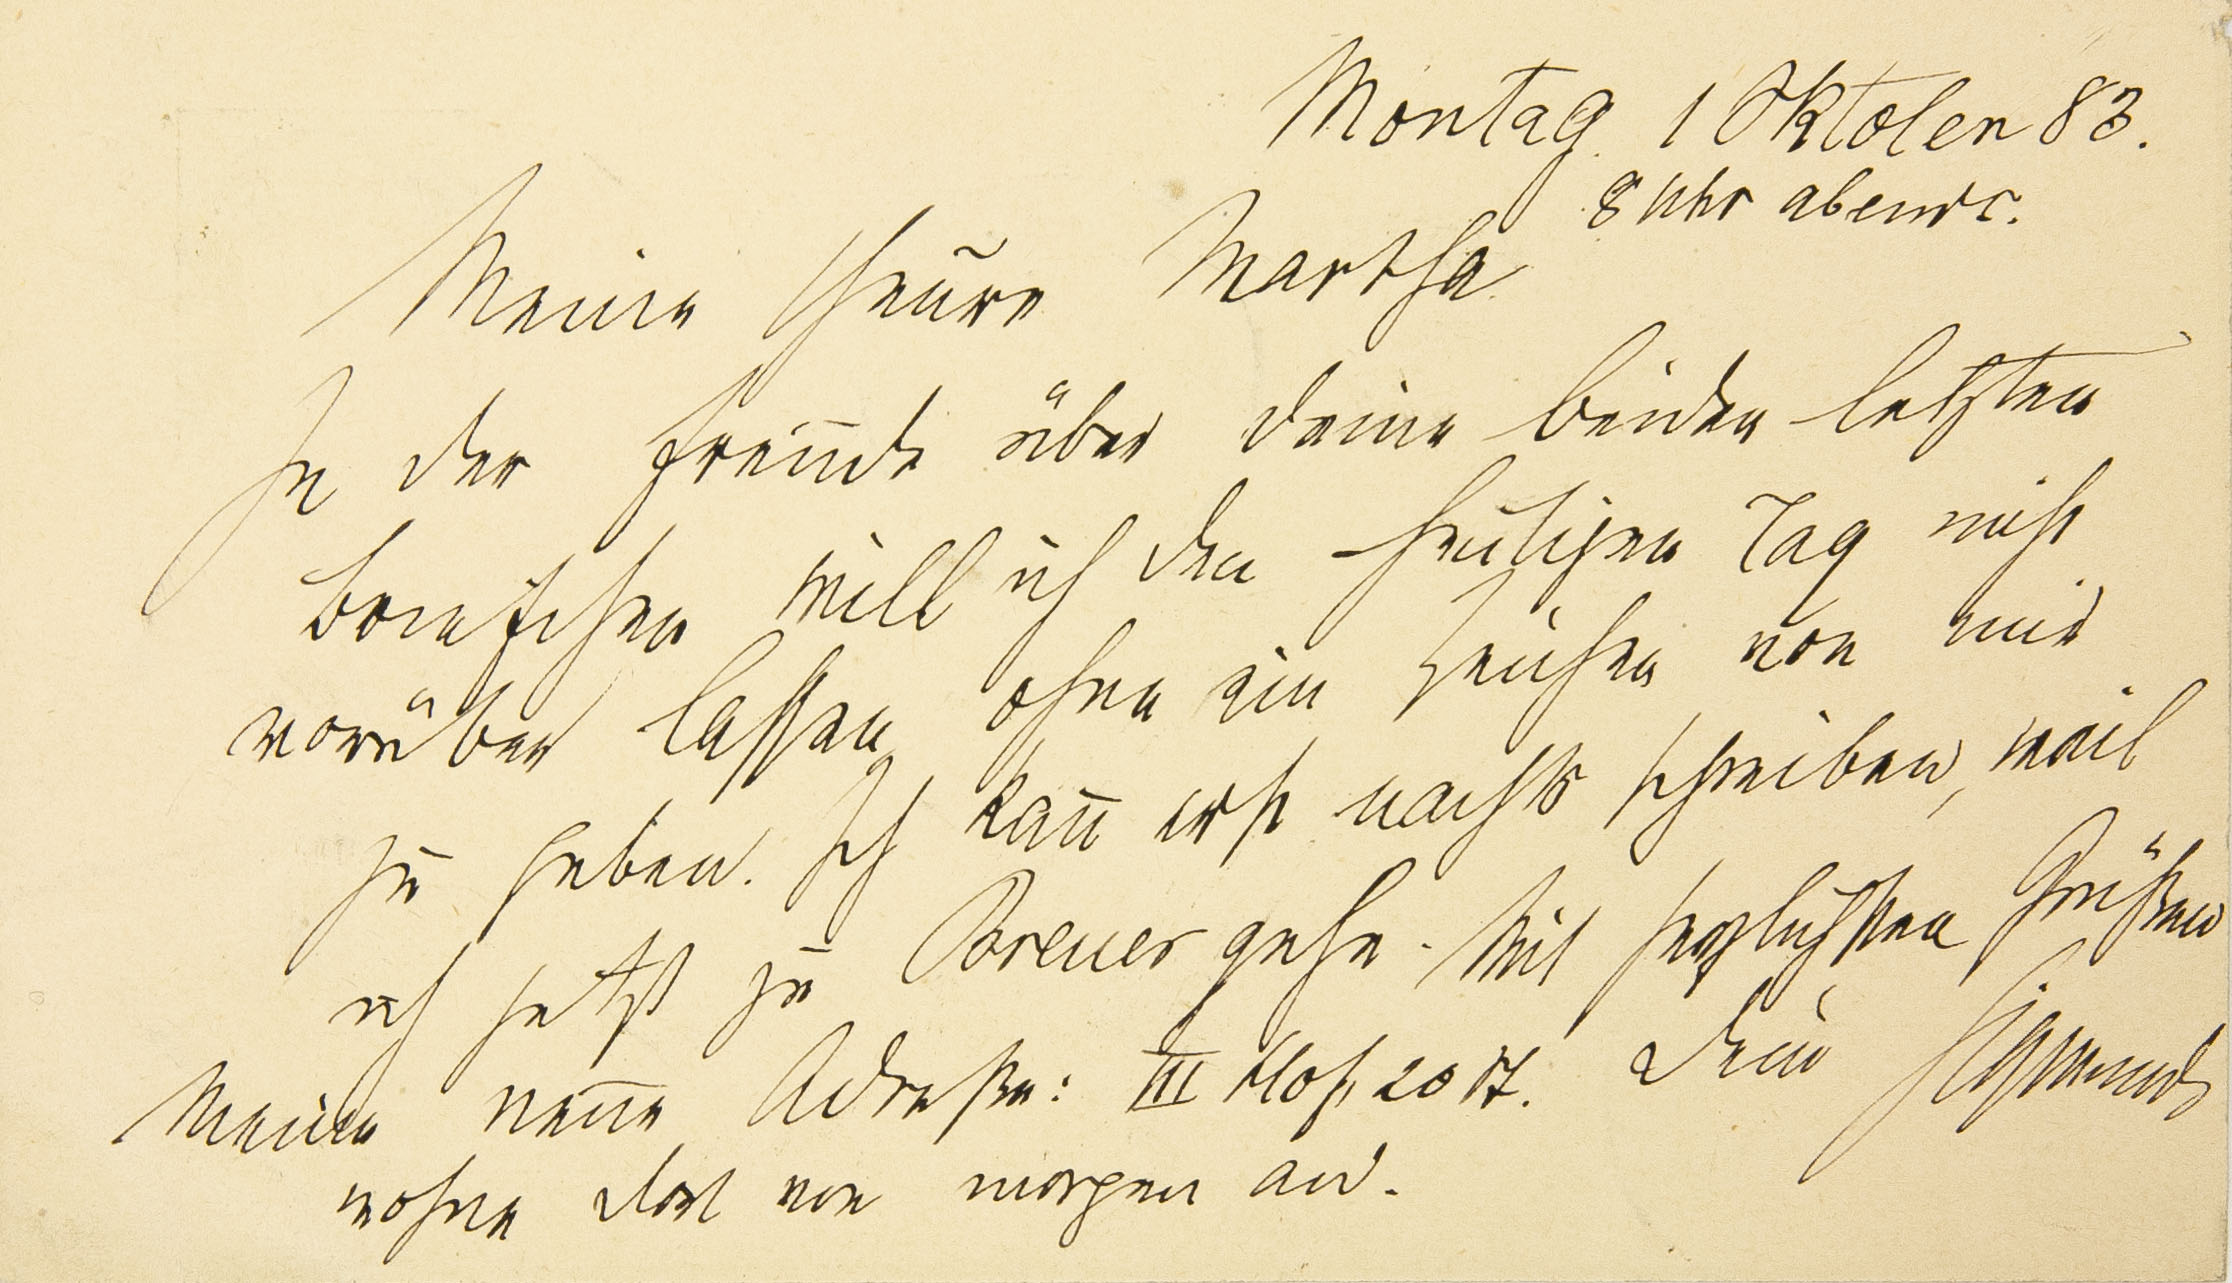 Montag 1 Oktober 83.
8 Uhr abends.
Meine theure Martha
In der Freude über deine beiden letzten
will ich den heutigen Tag nicht
vorüber lassen ohne ein Zeichen von mir
zu geben. Ich kann̄ erst nachts schreiben, weil
ich jetzt zu Breuer gehe. Mit herzlichsten Grüßen
Meine neue Adreße: III Hof, 20 Dein Sigmund
wohne dort von morgen an.